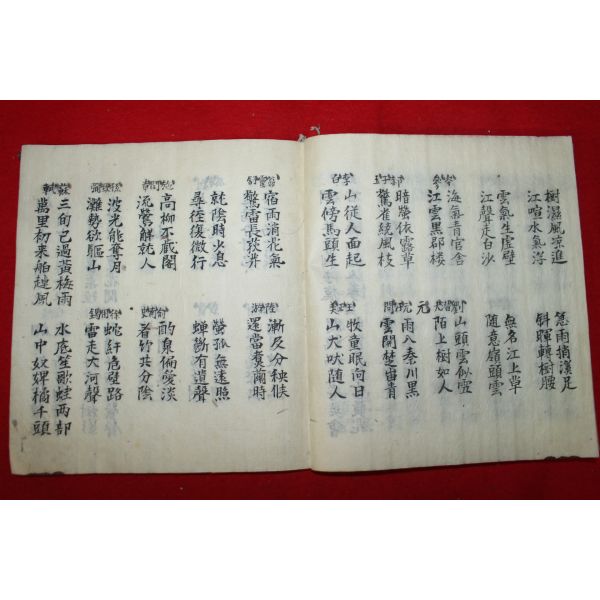 樹濕風凉進
江喧水氣浮
急雨捎溪足
斜暉轉樹腰
雲氣生虛壁
江聲走白沙
無名江上草
隨意嶺頭雲
岑參
海氣青官舍
江雲黑郡楼
山頭雲似雪
陌上樹如人
暗螢依露草
驚雀繞風枝
雨入秦川黒
雲開楚宙青
李白
山從人面起
雲傍馬頭生
牧童眠向日
山犬吠随人
宿雨消花氣
驚雷長荻芽
漸及分秧候
還當煑繭時
就陰時少息
尋徑復微行
螢孤無遠照
蟬斷有遺聲
高柳不藏閣
流鶯解就人
酌泉偏愛淡
看竹共分陰
波光能奪月
灘勢欲驅山
蛇紆危壁路
雷走大河聲
蘇軾
三旬已過黃梅雨
萬里初来舶趠風
水底笙歌蛙两部
山中奴婢橘千頭